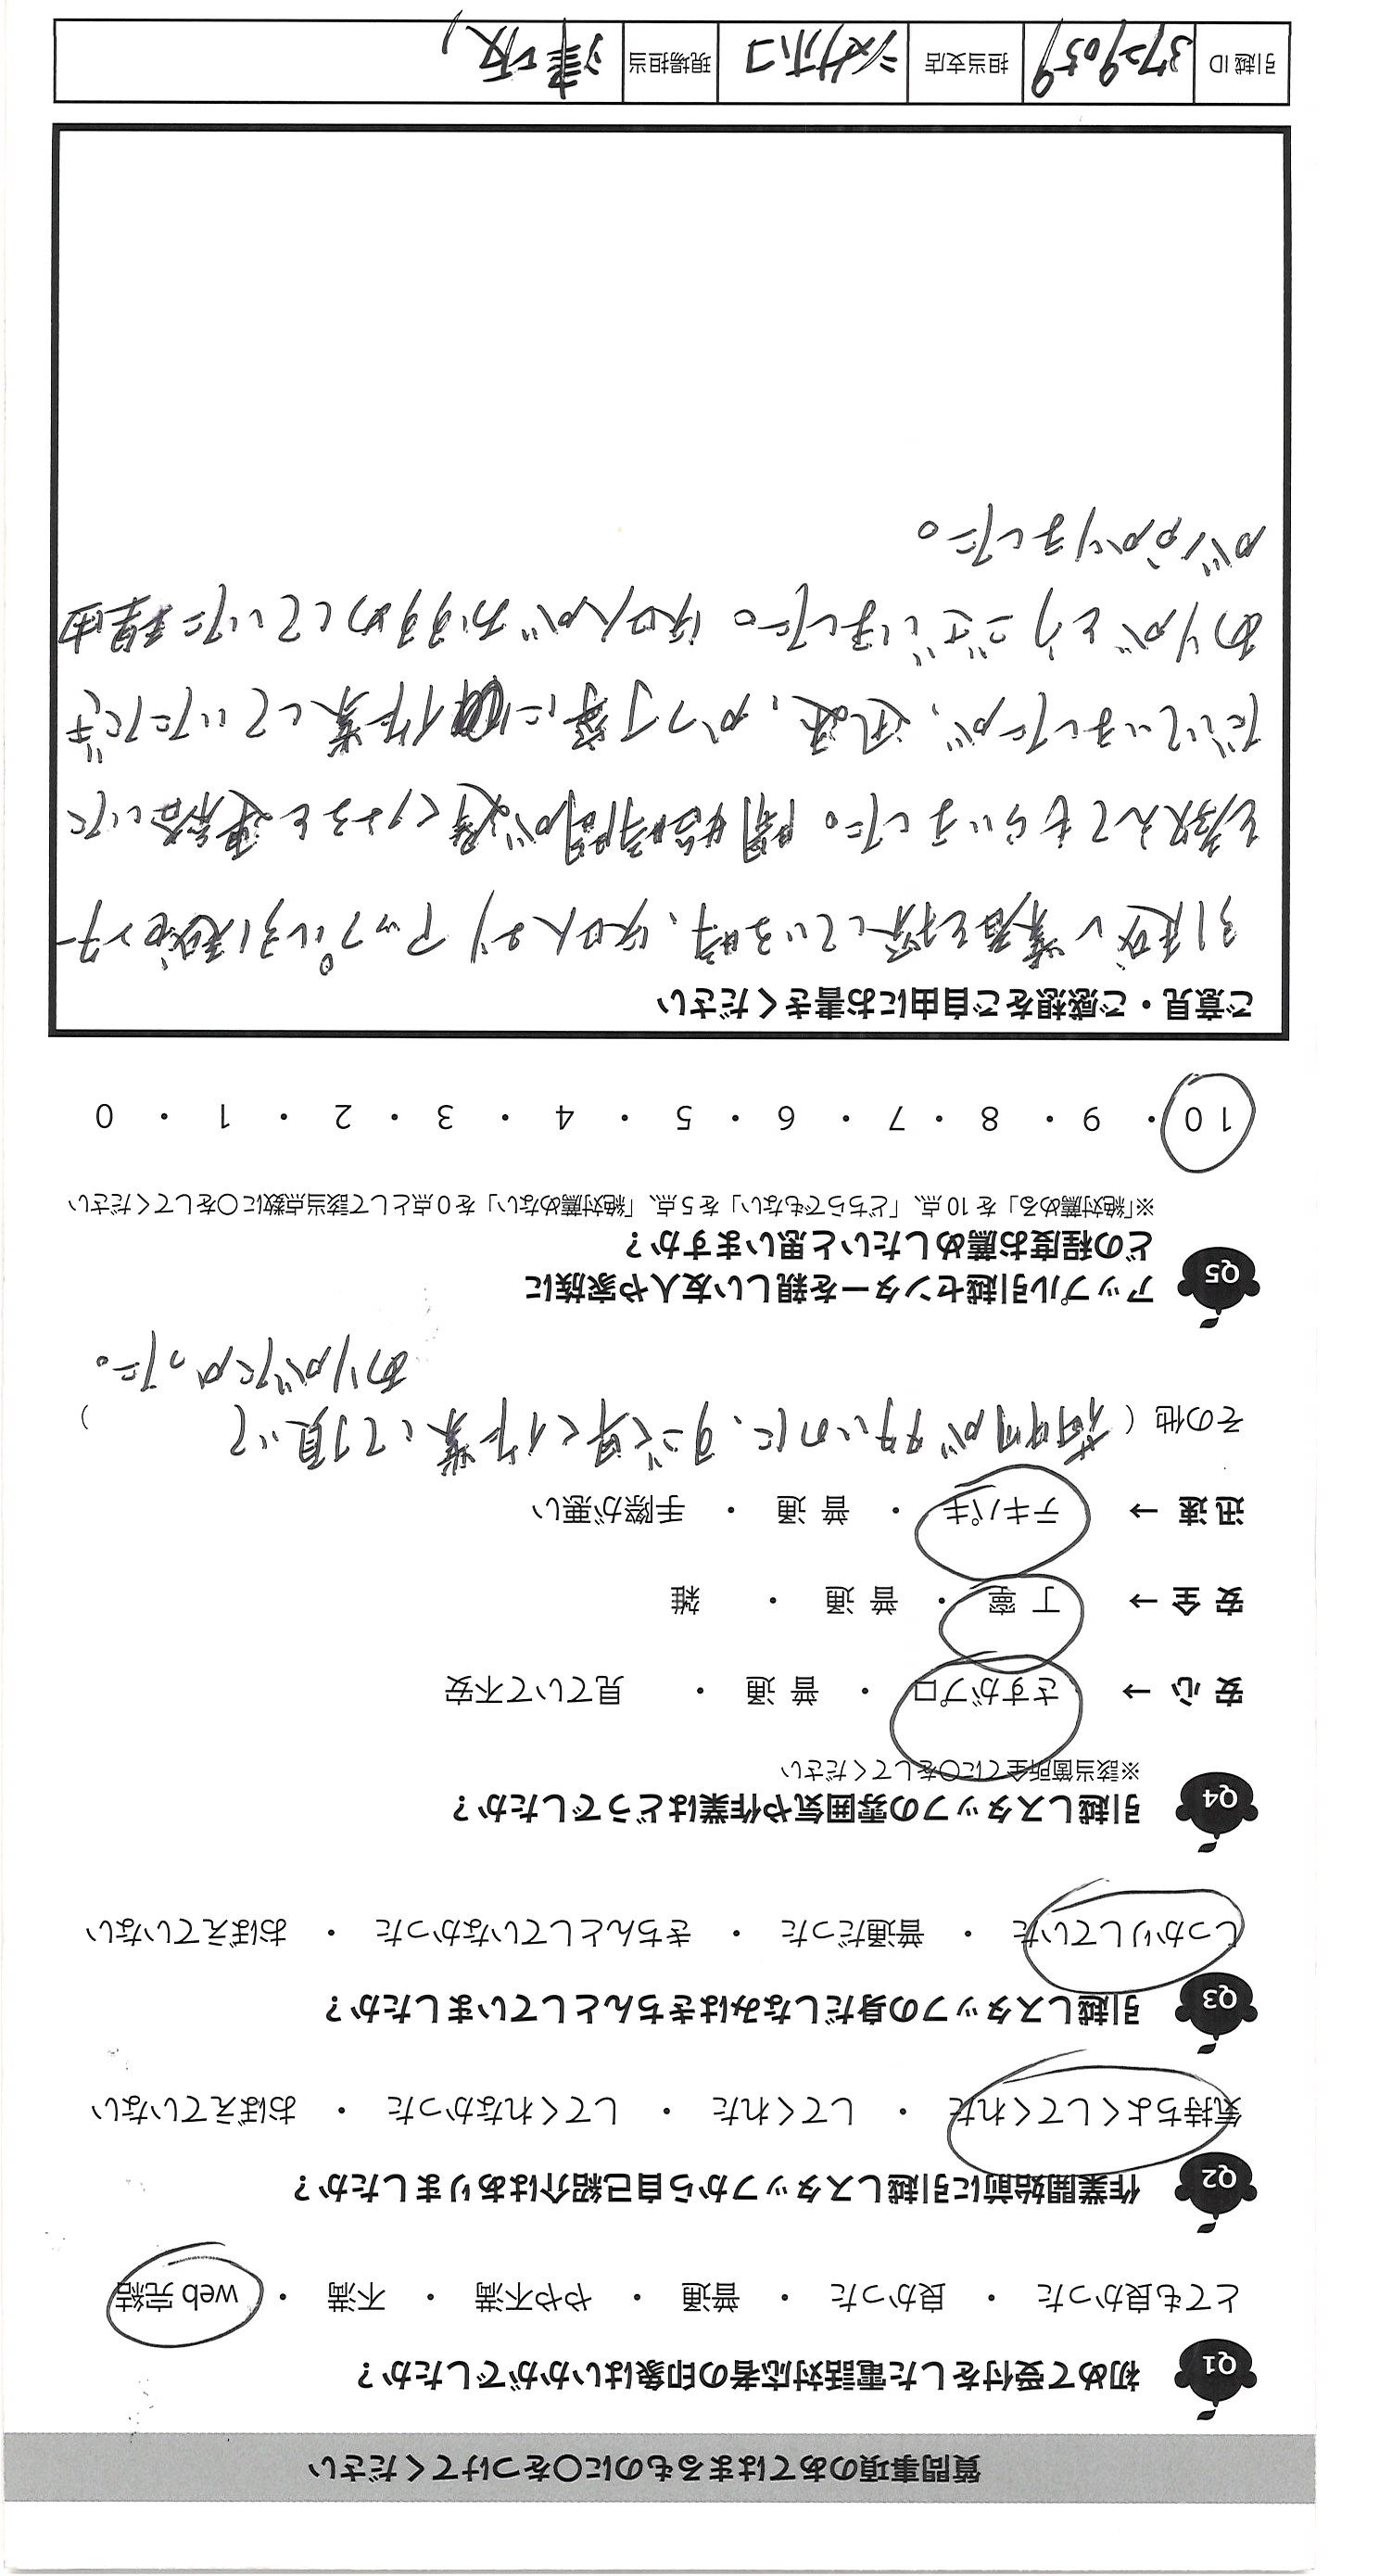 質問事項のあてはまるものに〇をつけてください
Q1 初めて受付をした電話対応者の印象はいかがでしたか？
とても良かった ・ 良かった ・ 普通 ・ やや不満 ・ 不満 ・ web 完結
Q2 作業開始前に引越しスタッフから自己紹介はありましたか？
気持ちよくしてくれた ・ してくれた ・ してくれなかった ・ おぼえていない
Q3 引越しスタッフの身だしなみはきちんとしていましたか？
しっかりしていた ・ 普通だった ・ きちんとしていなかった ・ おぼえていない
Q4 引越しスタッフの雰囲気や作業はどうでしたか？
※該当箇所全てに〇をしてください
安 心 → さすがプロ ・ 普 通 ・ 見ていて不安
安 全 → 丁 寧 ・ 普 通 ・ 雑
迅 速 → テキパキ ・ 普 通 ・ 手際が悪い
その他（ 荷物が多いのに、すごく早く作業して頂いて ）
ありがたかった。
Q5 アップル引越センターを親しい友人や家族に
どの程度お薦めしたいと思いますか？
※「絶対薦める」を 10 点、「どちらでもない」を 5 点、「絶対薦めない」を 0 点として該当点数に〇をしてください
10 ・ 9 ・ 8 ・ 7 ・ 6 ・ 5 ・ 4 ・ 3 ・ 2 ・ 1 ・ 0
ご意見・ご感想をご自由にお書きください
引越し業者を探している時、知人よりアップル引越センター
を教えてもらいました。開始時間が遅くなると連絡いた
だいていましたが、迅速、かつ丁寧に作業していただき
ありがとうございました。知人がおすすめしていた理由
が分かりました。
引越 ID 3729059 担当支店 ヨコハマ 現場担当